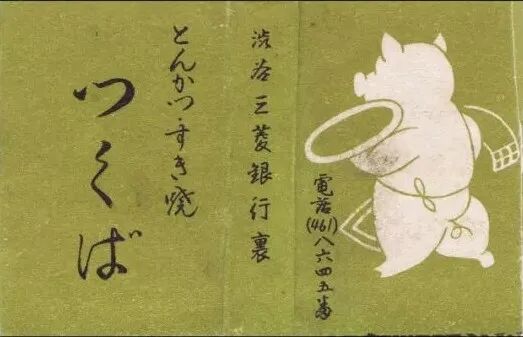 電話(461)八六四五番
渋谷三菱銀行裏
とんかつ・すき焼
つくば